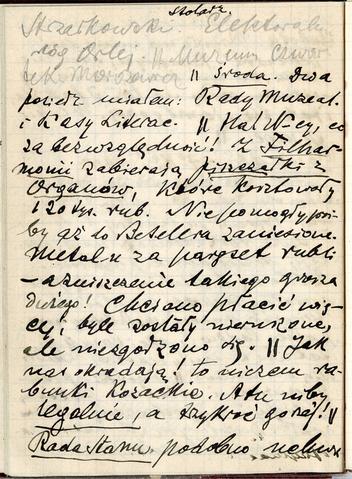 Stolarz.
Strzałkowski. Elektoral-
róg Orlej. || Muzeum Czwar-
tek Marszawa || Środa. Dwa
posiedz. miałem: Rady Muzeal.
i Kasy Literac. || Hał Ncy, co
za bezwzględność! Z Filhar-
monii zabierają piszczałki z
Organów, które kosztowały
120 tys. rub. Nie pomogły proś-
by aż do Beselera zaniesione.
Metalu za paręset rubli
– a zniszczenie takiego grosza
dużego! Chciano płacić wię-
cej, byle zostały nieruszone,
ale niezgodzono się. || Jak
nas okradają! to niczem ra-
bunki Kozackie. A tu niby
legalnie, a trzykroć gorzej! ||
Rada Stanu podobno